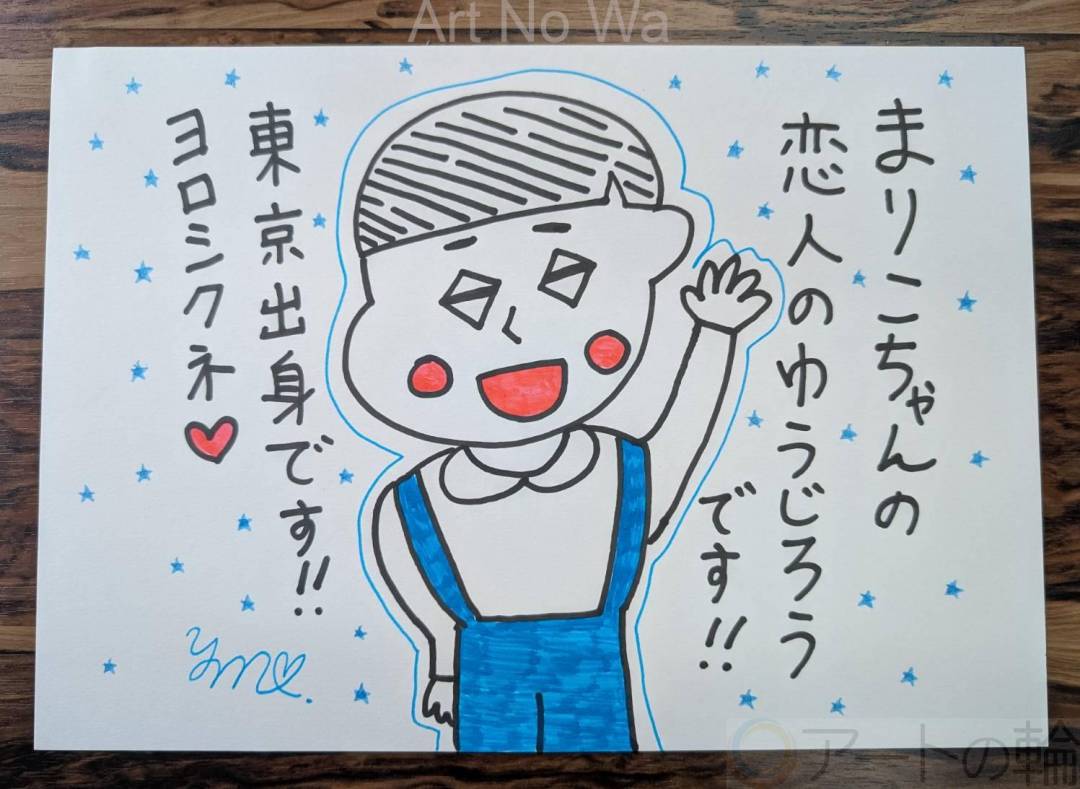 Art No Wa
まりこちゃんの
恋人のゆうじろう
です!!
東京出身です!!
ヨロシクネ♥
アートの輪